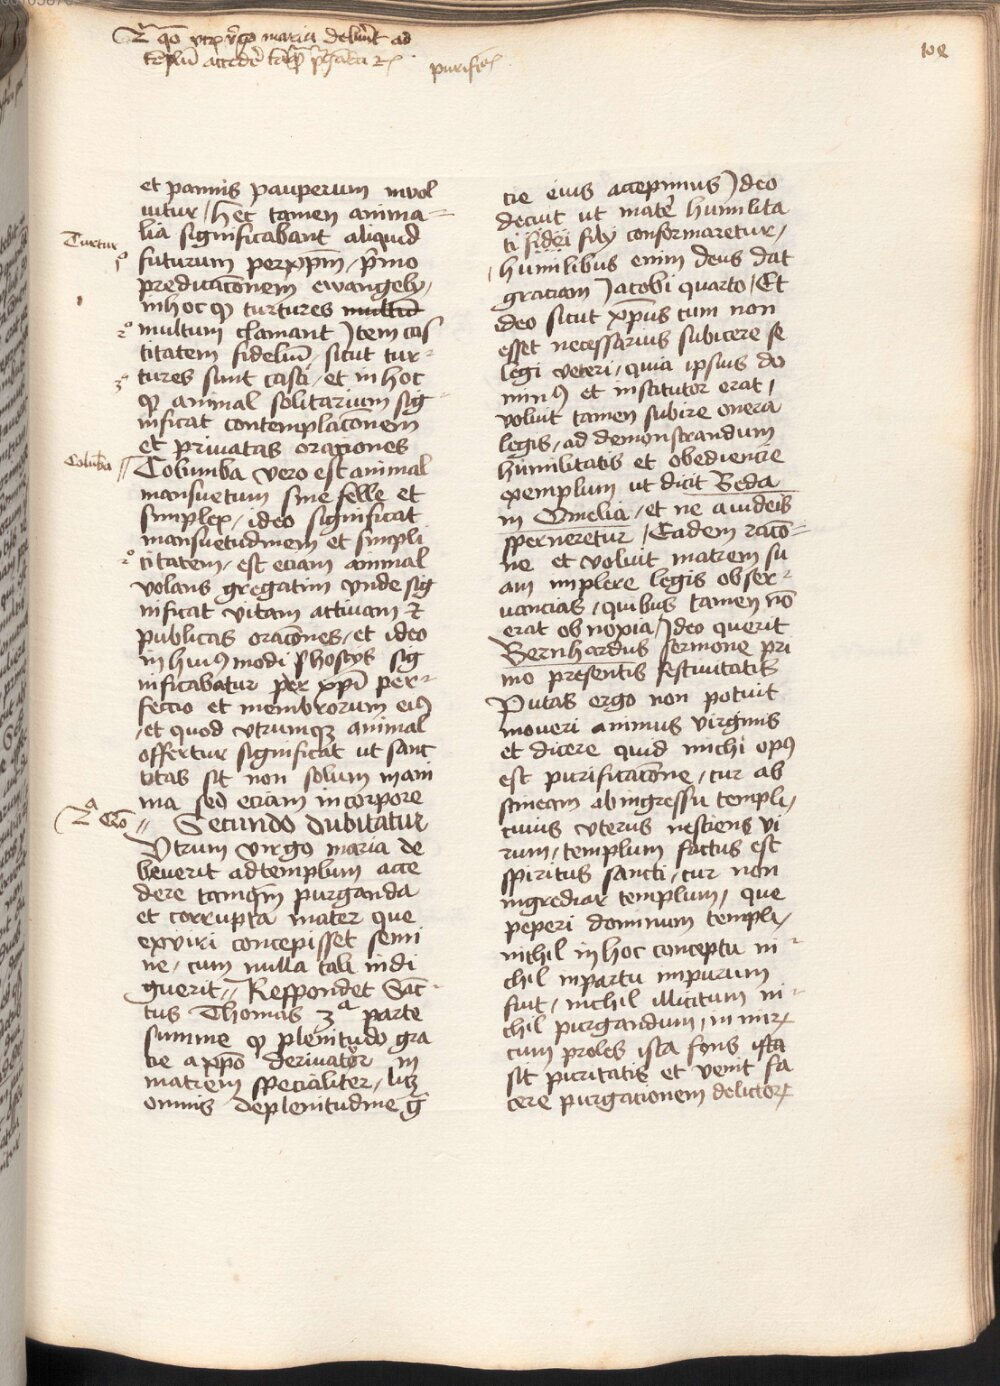 2ᵃ qo̅ vtꝝ v̾go maria debu̾it ad
te̅plu̅ acced̾e ta̅qꝫ p̾ga̅da ⁊c̾
purific̾
Turtur
1º
2º
3º
Colu̅ba
2º
2ᵃ q̅o
et pannis pauperum invol
uitur / hec tamen anima-
lia significabant aliquid
futurum per xp̅m / p̾mo
predicac̅onem ewangely /
in hoc qꝫ turtures multu̅
multum clamant Item cas
titatem fideliu̅ / sicut tur-
tures sunt casti / et in hoc
qꝫ animal solitarium sig
nificat contemplac̅onem
et priuatas orationes
Columba vero est animal
mansuetum sine felle et
simplex / ideo significat
mansuetudinem et simpli
citatem / est eciam animal
volans gregatim vnde sig
nificat vitam actiuam ⁊
publicas orac̅ones / et ideo
in huiꝰ modi hostys sig
nificabatur per xp̅i per-
feccio et membrorum eiꝰ
/ et quod vtrumqꝫ animal
offertur significat ut sanc
titas sit non solum in ani
ma sed eciam in corpore
Secundo dubitatur
Vtrum virgo maria de
beuerit ad templum acce
dere tamq̅m purganda
et corrupta mater que
ex viri concepisset semi
ne / cum nulla tali indi
guerit // Respondet Sanc-
tus Thomas 3ᵃ parte
summe qꝫ plenitudo gra
cie a xp̅o deriuatur in
matrem specialiter / licꝫ
omnis de plenitudine g̅
cie eius accepimus Ideo
decuit ut mater humilita
ti fidei fily conformaretur /
/ humilibus enim deus dat
graciam Jacobi quarto / Et
ideo sicut xp̅us cum non
esset necessarius subicere se
legi veteri / quia ipsius do
minꝰ et institutor erat /
voluit tamen subire onera
legis / ad demonstrandum
humilitatis et obediencie
exemplum ut dicit Beda
in Omelia / et ne a iudeis
sperneretur / Eadem raco̅-
ne et voluit matrem su
am implere legis obser-
uancias / quibus tamen no̅
erat obnoxia / Ideo querit
Bernhardus sermone pri
mo presentis festiuitatis
Putas ergo non potuit
moueri animus virginis
et dicere quid michi opꝰ
est purificac̅one / cur ab
stineam ab ingressu templi /
cuius vterus nesciens vi
rum / templum factus est
spiritus sancti / cur non
ingrediar templum / que
peperi dominum templi /
nichil in hoc conceptu ni-
chil in partu impurum
fuit / nichil illicitum ni-
chil purgandum / in mirꝝ
cum proles ista fons ista
sit puritatis et venit fa
cere purgationem delictorꝝ